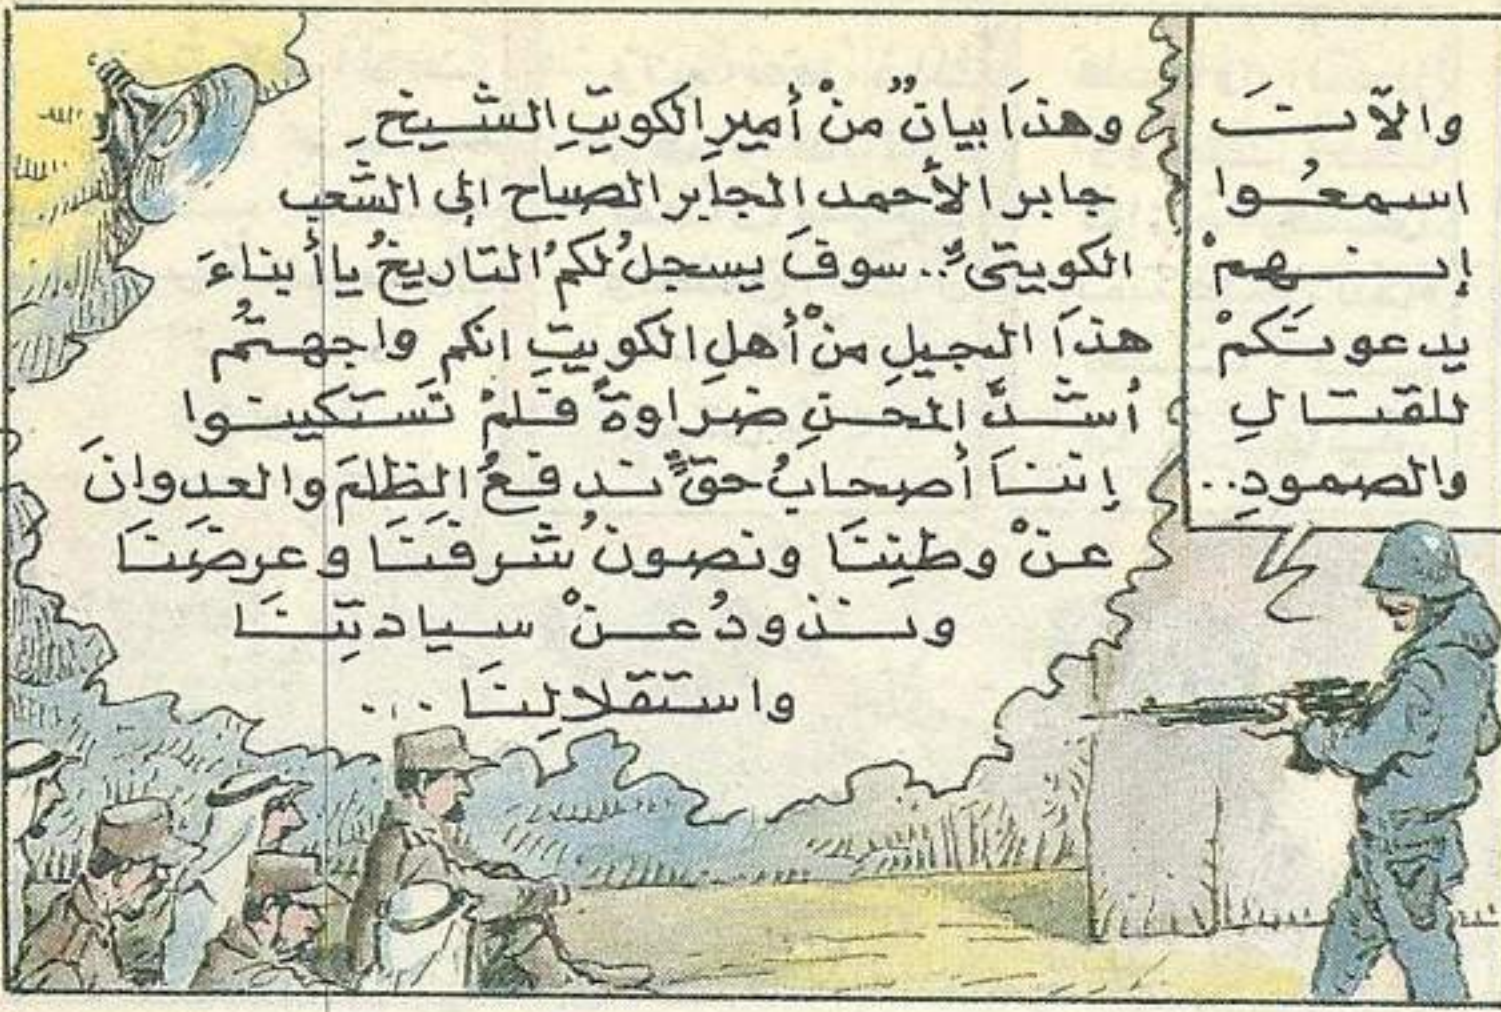 والآنَ
اسمعُوا
إنهمْ
يدعونَكمْ
للقتالِ
والصمودِ..
وهذَا بيانٌ منْ أميرِ الكويتِ الشيخِ
جابر الأحمد الجابر الصباح إلى الشعب
الكويتىِّ.. سوفَ يسجلُ لكمُ التاريخُ يا أبناءَ
هذَا الجيلِ منْ أهلِ الكويتِ انكم واجهتمْ
أشدَّ المحنِ ضراوةً فلمْ تَستكينوا
إننَا أصحابُ حقٍّ ندفعُ الظلمَ والعدوانَ
عنْ وطنِنَا ونصونُ شرفَنَا وعرضَنَا
ونذودُ عنْ سيادتِنَا
واستقلالِنَا ...